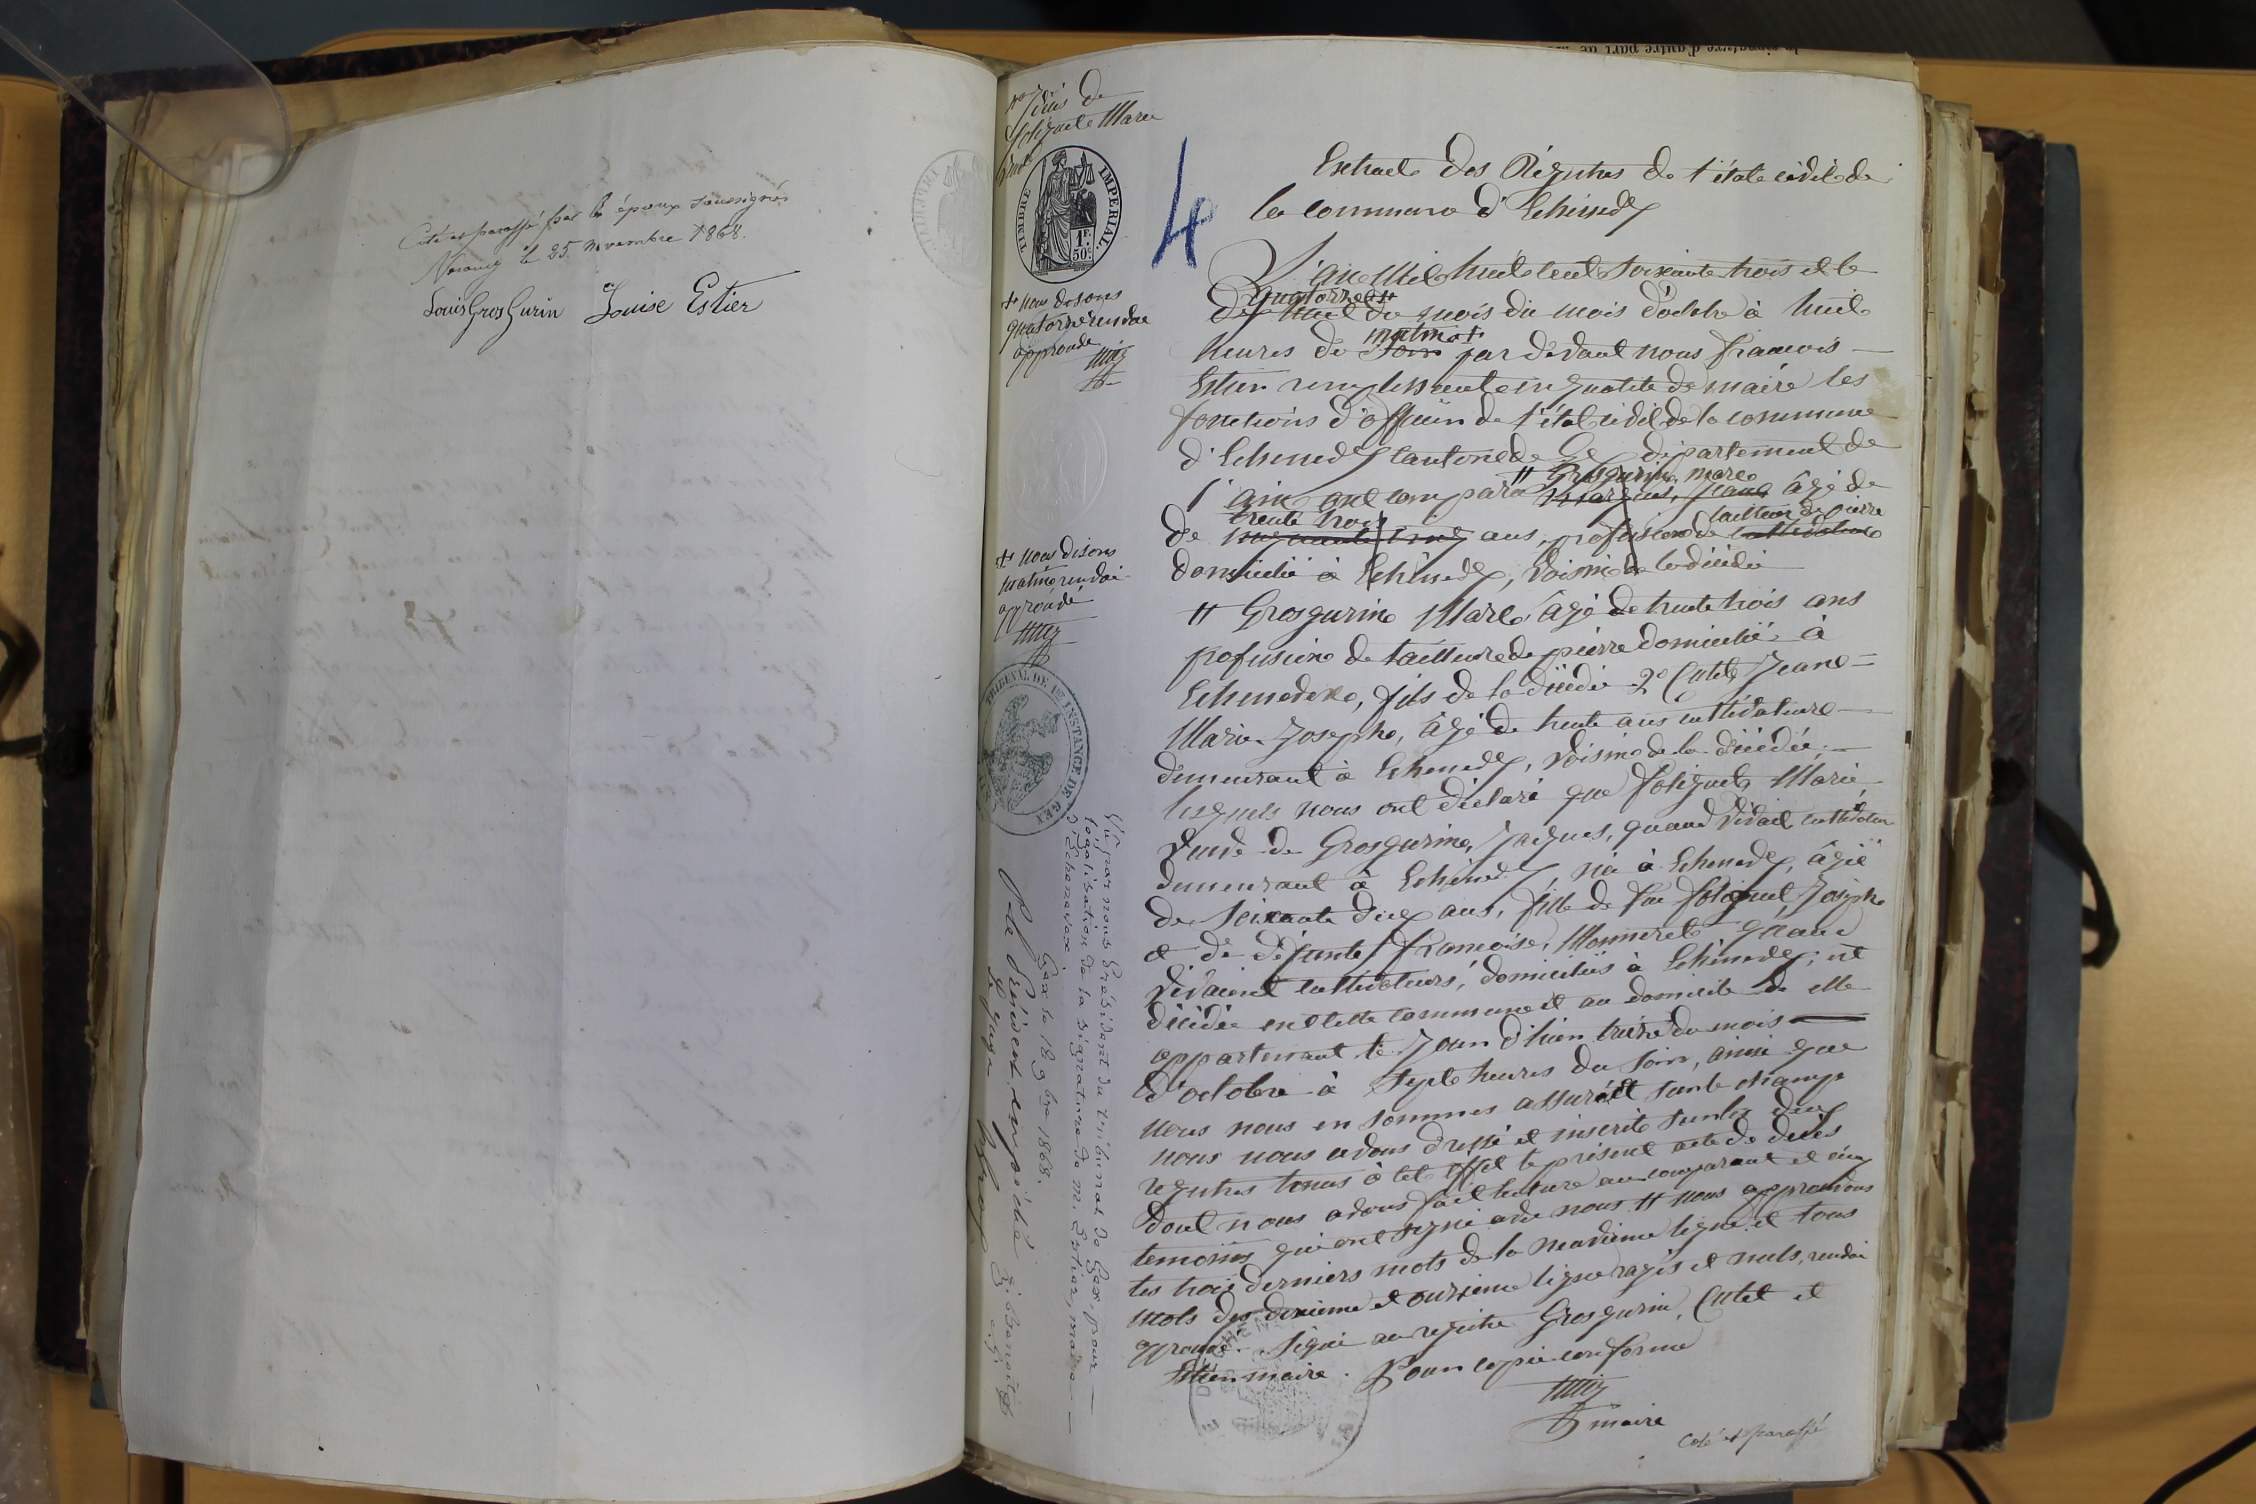 Coté et paraffé par les époux soussignés
Neromez le 25 novembre 1868.
Louis Gros Gurin Louise Estier
Décès de
foliquet Marie
TIMBRE IMPERIAL.
1F.
50c.
4
Extrait des Régistres de l'état civil de
la commune d'Echenedex
L'an Mil huit cent soixante trois et le
quatorze ++
dix huit du mois du mois d'octobre à huit
matin +
heures de soir par devant nous françois
Estier remplissant en qualité de maire les
fonctions d'officier de l'état civil de la commune
d'Echenedex canton de Gex département de
# Grosgurin marc
l'ain ont comparu Jean âgé de
trente trois tailleur de pierre
de cinquante cinq ans, profession de cultivateur
domicilié à Echenedex, voisin de la décédée
# Grosgurin Marc âgé de trente trois ans
profession de tailleur de pierre domicilié à
Echenedex, fils de la décédée 2° Cutet Jean=
Marie Joseph, âgé de trente ans cultivateur
demeurant à Echenedex, voisin de la décédée,
lesquels nous ont déclaré que foliquet Marie,
veuve de Grosgurin, Jacques, quand vivait cultivateur
demeurant à Echenedex, née à Echenedex, âgée
de soixante dix ans, fille de feu foliquet, Joseph
et de défunte françoise, Monneret quand
vivaient cultivateurs, domiciliés à Echenedex; est
décédée en cette commune et au domicile de elle
appartenant le Jour d'hier treize du mois
d'octobre à sept heures du soir, ainsi que
nous nous en sommes assuré et sur le champ
nous nous avons dressé et inscrit sur les deux
registres tenus à cet effet le présent acte de décès
dont nous avons fait lecture au comparant et aux
temoins qui ont signé avec nous # nous approuvons
les trois derniers mots de la neuvieme ligne et tous
mots des dixieme et onzieme ligne rayés et nuls, rendu
approuvé. Signé au registre Grosgurin, Cutet et
Estier maire. Pour copie conforme
maire
Coté et paraffé
+ nous disons
quatorze rendu
approuvé
+ nous disons
matin rendu
approuvé
TRIBUNAL DE 1ER INSTANCE DE GEX
Vu par nous Président du tribunal de Gex, pour
légalisation de la signature de M. Estier, maire
d'Echenevex.
Gex le 18 9bre 1868.
P. le Président, empêché
Le Juge